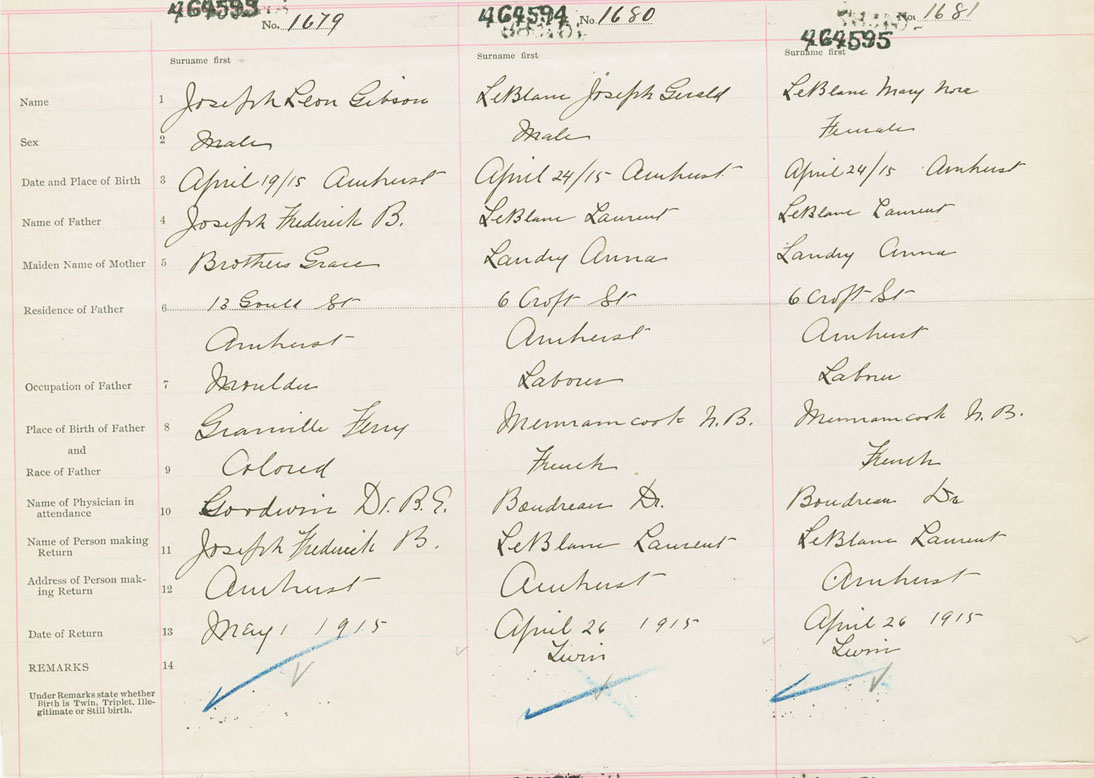 464593 No. 1679 464594 No. 1680 No. 1681
464595
Surname first Surname first Surname first
Name 1 Joseph Leon Gibson LeBlanc Joseph Gerald LeBlanc Mary Nora
Sex 2 Male Male Female
Date and Place of Birth 3 April 19/15 Amherst April 24/15 Amherst April 24/15 Amherst
Name of Father 4 Joseph Frederick B. LeBlanc Laurent LeBlanc Laurent
Maiden Name of Mother 5 Brothers Grace Landry Anna Landry Anna
Residence of Father 6 13 Gould St 6 Croft St 6 Croft St
Amherst Amherst Amherst
Occupation of Father 7 Moulder Laborer Laborer
Place of Birth of Father 8 Granville Ferry Memramcook N.B. Memramcook N.B.
and
Race of Father 9 Colored French French
Name of Physician in
attendance 10 Goodwin Dr. B.E. Boudreau Dr. Boudreau Dr
Name of Person making
Return 11 Joseph Frederick B. LeBlanc Laurent LeBlanc Laurent
Address of Person mak-
ing Return 12 Amherst Amherst Amherst
Date of Return 13 May 1 1915 April 26 1915 April 26 1915
REMARKS 14 Twin Twin
Under Remarks state whether
Birth is Twin, Triplet, Ille-
gitimate or Still birth.